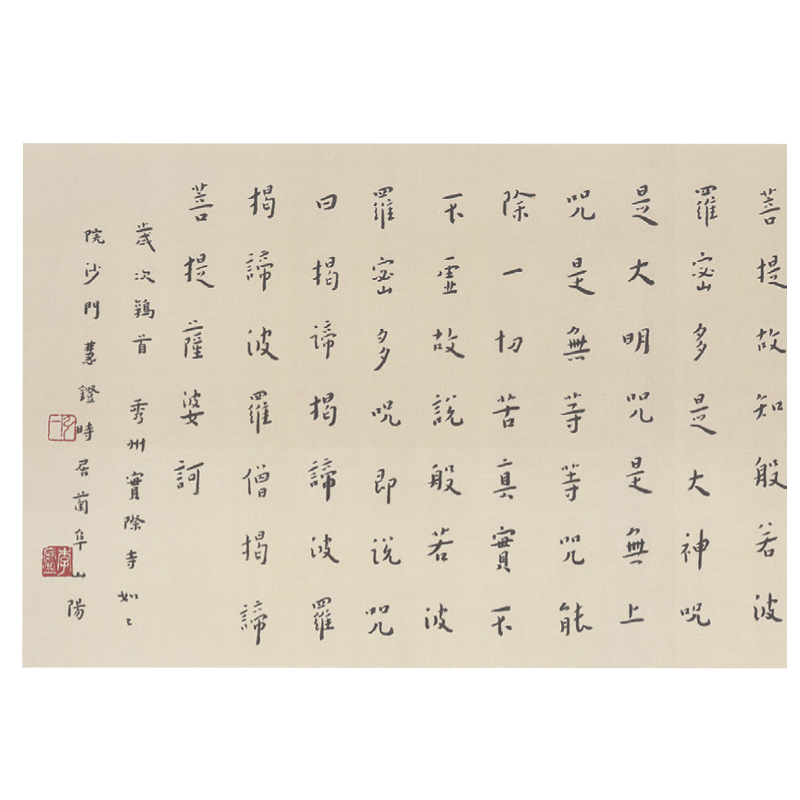 菩提故知般若波
羅宻多是大神咒
是大明咒是無上
咒是無等等咒能
除一切苦真實不
不虛故說般若波
羅宻多咒即说咒
曰揭諦揭諦波羅
揭諦波羅僧揭諦
菩提薩婆訶
歲次鶉首 秀州實際寺如々
院沙門慧鐙時居蘭阜山陽